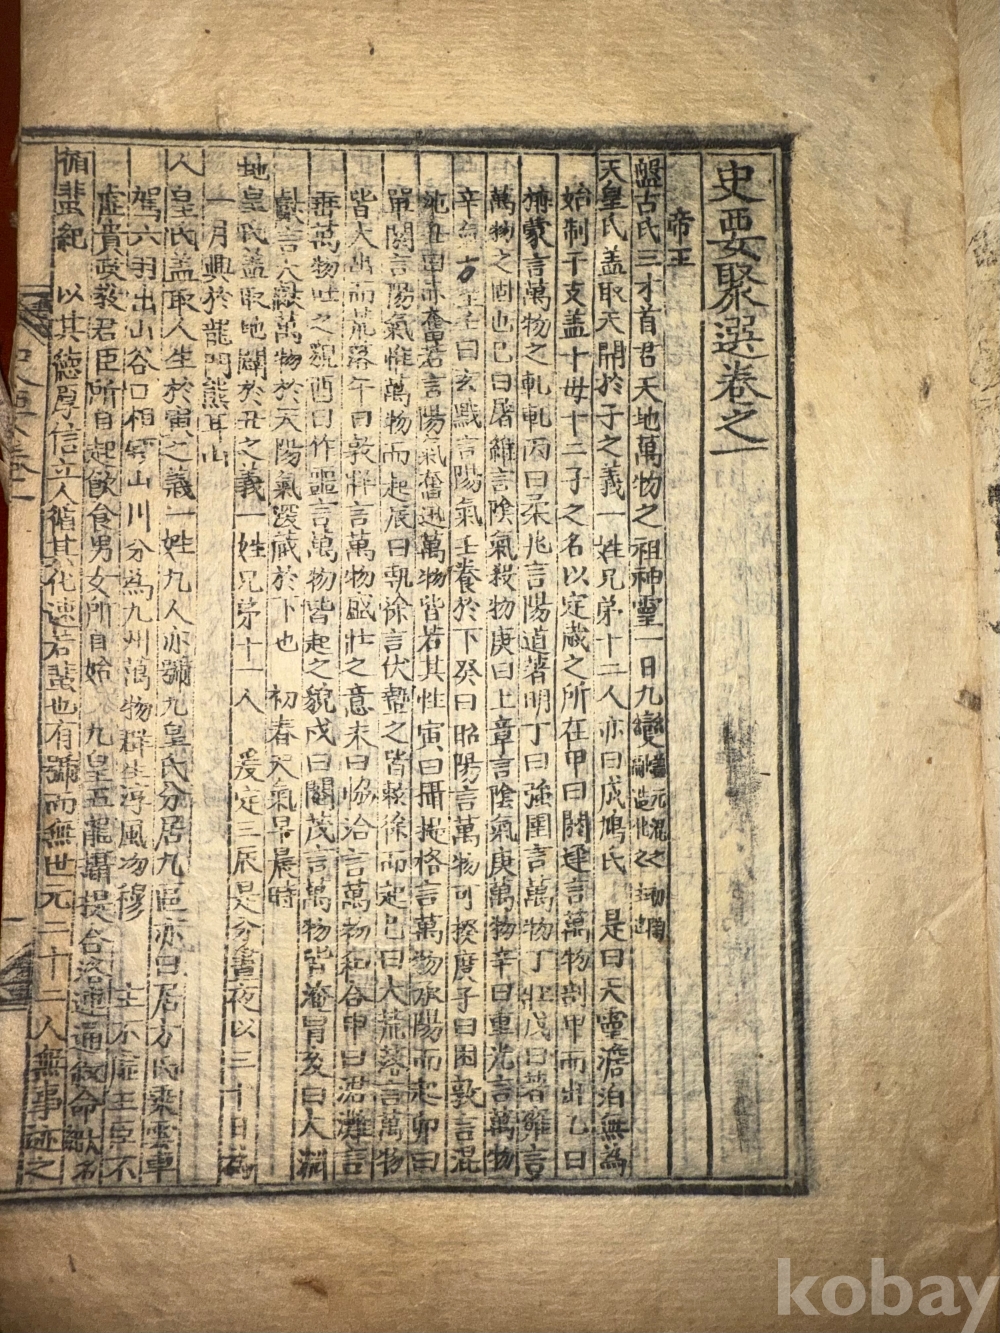 史要聚選卷之一
帝王
盤古氏三才首君天地萬物之祖神靈一日九變
天皇氏蓋取天開於子之義一姓兄弟十二人亦曰成鳩氏 是曰天靈澹泊無為
始制干支蓋十母十二子之名以定歲之所在甲曰閼逢言萬物剖甲而出乙曰
旃蒙言萬物之軋軋丙曰柔兆言陽道著明丁曰強圉言萬物丁壯戊曰著雍言
萬物之固也己曰屠維言陰氣殺物庚曰上章言陰氣庚萬物辛曰重光言萬物
辛氣方壬曰玄黓言陽氣壬養於下癸曰昭陽言萬物可揆度子曰困敦言混
沌丑曰赤奮若言陽氣奮迅萬物皆若其性寅曰攝提格言萬物承陽而起卯曰
單閼言陽氣推萬物而起辰曰執徐言伏蟄之皆敕徐而起巳曰大荒落言萬物
皆大出而荒落午曰敦牂言萬物盛壯之意未曰協洽言萬物和合申曰涒灘言
垂萬物吐之貌酉曰作噩言萬物皆起之貌戌曰閹茂言萬物皆淹冒亥曰大淵
獻言大獻萬物於天陽氣深藏於下也 初春天氣早晨時
地皇氏蓋取地闢於丑之義一姓兄弟十一人 爰定三辰是分晝夜以三十日為
一月興於龍門熊耳山
人皇氏蓋取人生於寅之義一姓九人亦號九皇氏分居九區亦曰居方氏乘雲車
駕六羽出山谷口相厥山川分為九州萬物群生淳風沕穆 主不虛王臣不
虛貴政教君臣所自起飲食男女所自始 九皇五龍攝提合洛連通敘命
循蜚紀 以其德厚信立人循其化速若蜚也有號而無世元二十二人無事迹之
kobay